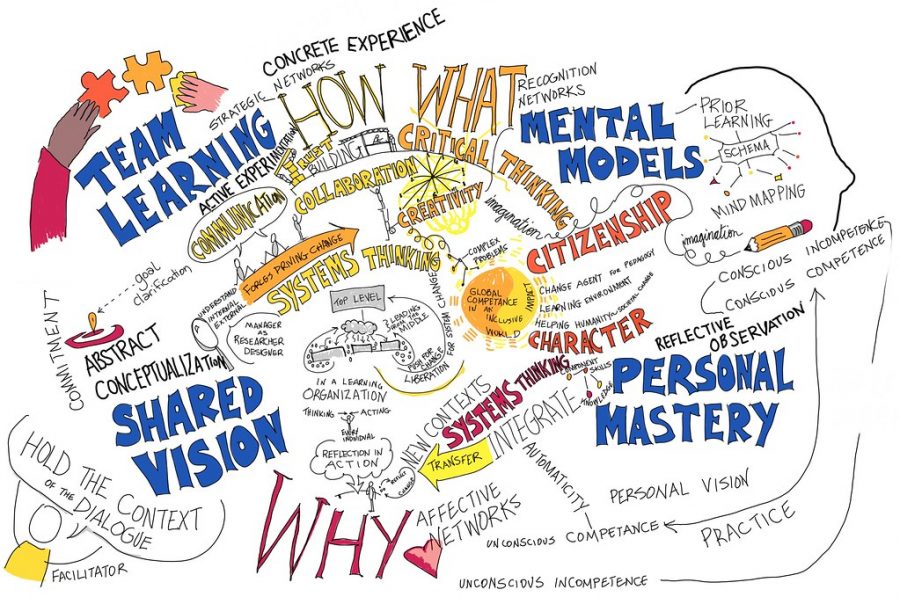 CONCRETE EXPERIENCE
STRATEGIC NETWORKS
HOW
WHAT
RECOGNITION
NETWORKS
TEAM
LEARNING
ACTIVE EXPERIMENTATION
TRUST
BUILDING
COLLABORATION
COMMUNICATION
CRITICAL THINKING
CREATIVITY
imagination
MENTAL
MODELS
PRIOR
LEARNING
SCHEMA
MIND MAPPING
imagination
CITIZENSHIP
CONSCIOUS INCOMPETENCE
CONSCIOUS COMPETENCE
goal
clarification
COMMITMENT
FORCES DRIVING CHANGE
SYSTEMS THINKING
UNDERSTAND
INTERNAL
EXTERNAL
MANAGER
AS
RESEARCHER
DESIGNER
TOP LEVEL
3 LEADING
FROM
MIDDLE
PUSH FOR
CHANGE
LIBERATION FOR SYSTEM CHANGE
COMPLEX
PROBLEMS
GLOBAL
COMPETENCE
IN AN
INCLUSIVE
WORLD
IMPACT
CHANGE AGENT FOR PEDAGOGY
LEARNING ENVIRONMENT
HELPING HUMANITY
SOCIAL CHANGE
CHARACTER
REFLECTIVE
OBSERVATION
ABSTRACT
CONCEPTUALIZATION
SHARED
VISION
IN A LEARNING
ORGANIZATION
THINKING
ACTING
EVERY
INDIVIDUAL
REFLECTION IN
ACTION
REFLECT
CHANGE
NEW CONTEXTS
SYSTEMS THINKING
COMPONENT
SKILLS
KNOWLEDGE
INTEGRATE
TRANSFER
AUTOMATICITY
PERSONAL
MASTERY
PERSONAL VISION
PRACTICE
UNCONSCIOUS COMPETANCE
UNCONSCIOUS INCOMPETENCE
WHY
AFFECTIVE
NETWORKS
HOLD THE CONTEXT
OF THE DIALOGUE
FACILITATOR